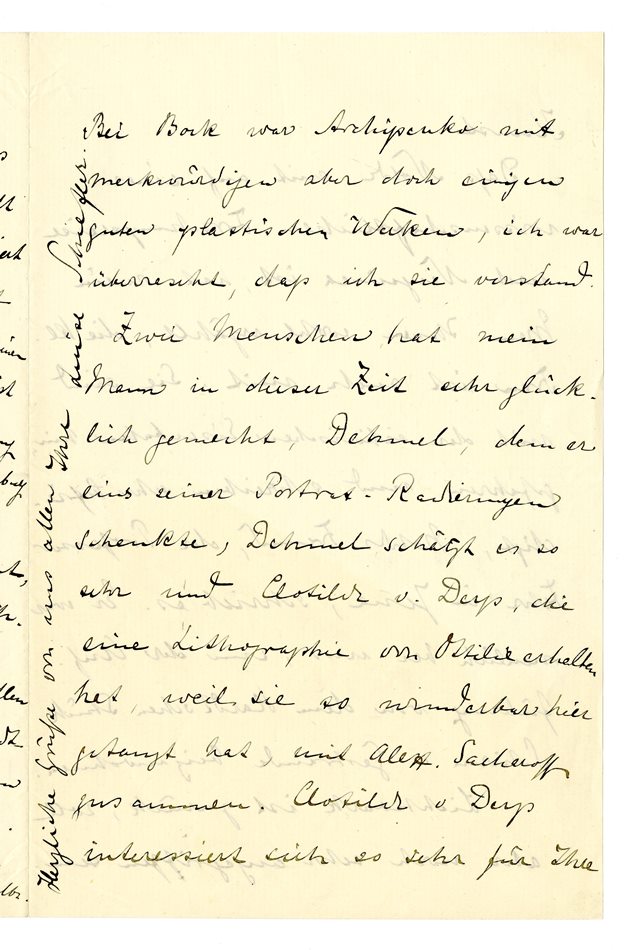 Bei Bock war Archipenko mit
merkwürdigen aber doch einigen
guten plastischen Werken, ich war
überrascht, daß ich sie verstand.
Zwei Menschen hat mein
Mann in dieser Zeit sehr glück-
lich gemacht, Dehmel, dem er
eins seiner Portrat-Radierungen
schenkte, Dehmel schätzt es so
sehr und Clotilde v. Derp, die
eine Lithographie von Ottilie erhalten
hat, weil sie so wunderbar hier
getanzt hat, mit Alex. Sacharoff
zusammen. Clotilde v Derp
interessiert sich so sehr für Ihre
Herzliche Grüße von uns allen Ihre Luise Schiefler.